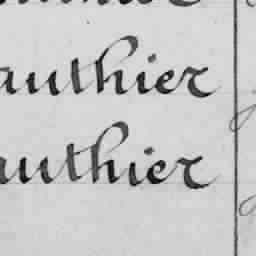 authier
authier